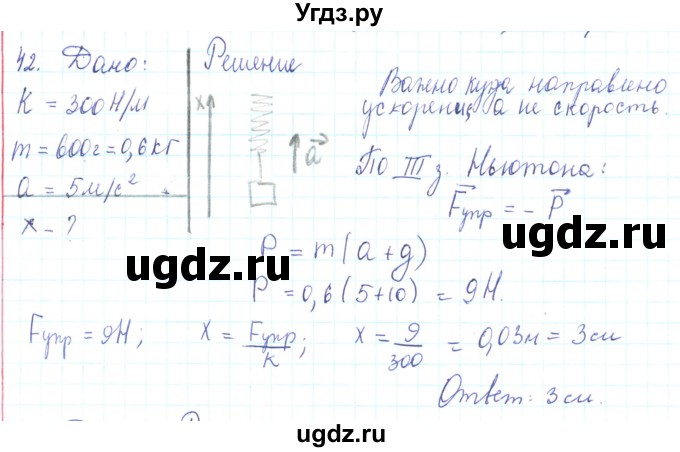 Угдз.ру
42. Дано:
K = 300 Н/м
m = 600г = 0,6 кг
a = 5 м/с²
x - ?
Решение
x
a
Важно куда направлено
ускорение, а не скорость.
По III з. Ньютона:
Fупр = - P
P = m(a+g)
P = 0,6(5+10) = 9Н.
Fупр = 9Н; x = Fупр/K; x = 9/300 = 0,03м = 3см
Ответ: 3см.
ugdz.ru
ugdz.ru
ugdz.ru
ugdz.ru